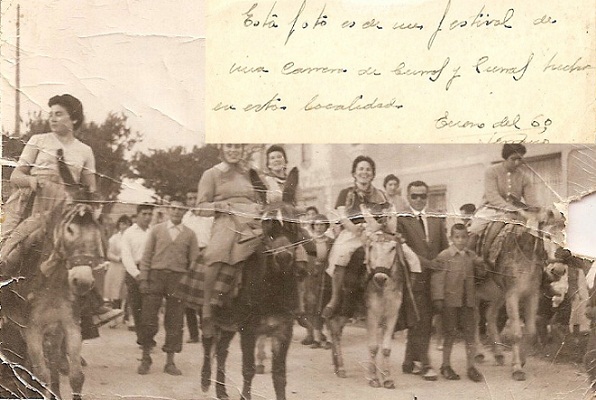 Esta foto es de un festival de
una Carrera de burros y burras hecha
en esta localidad
Verano del 60